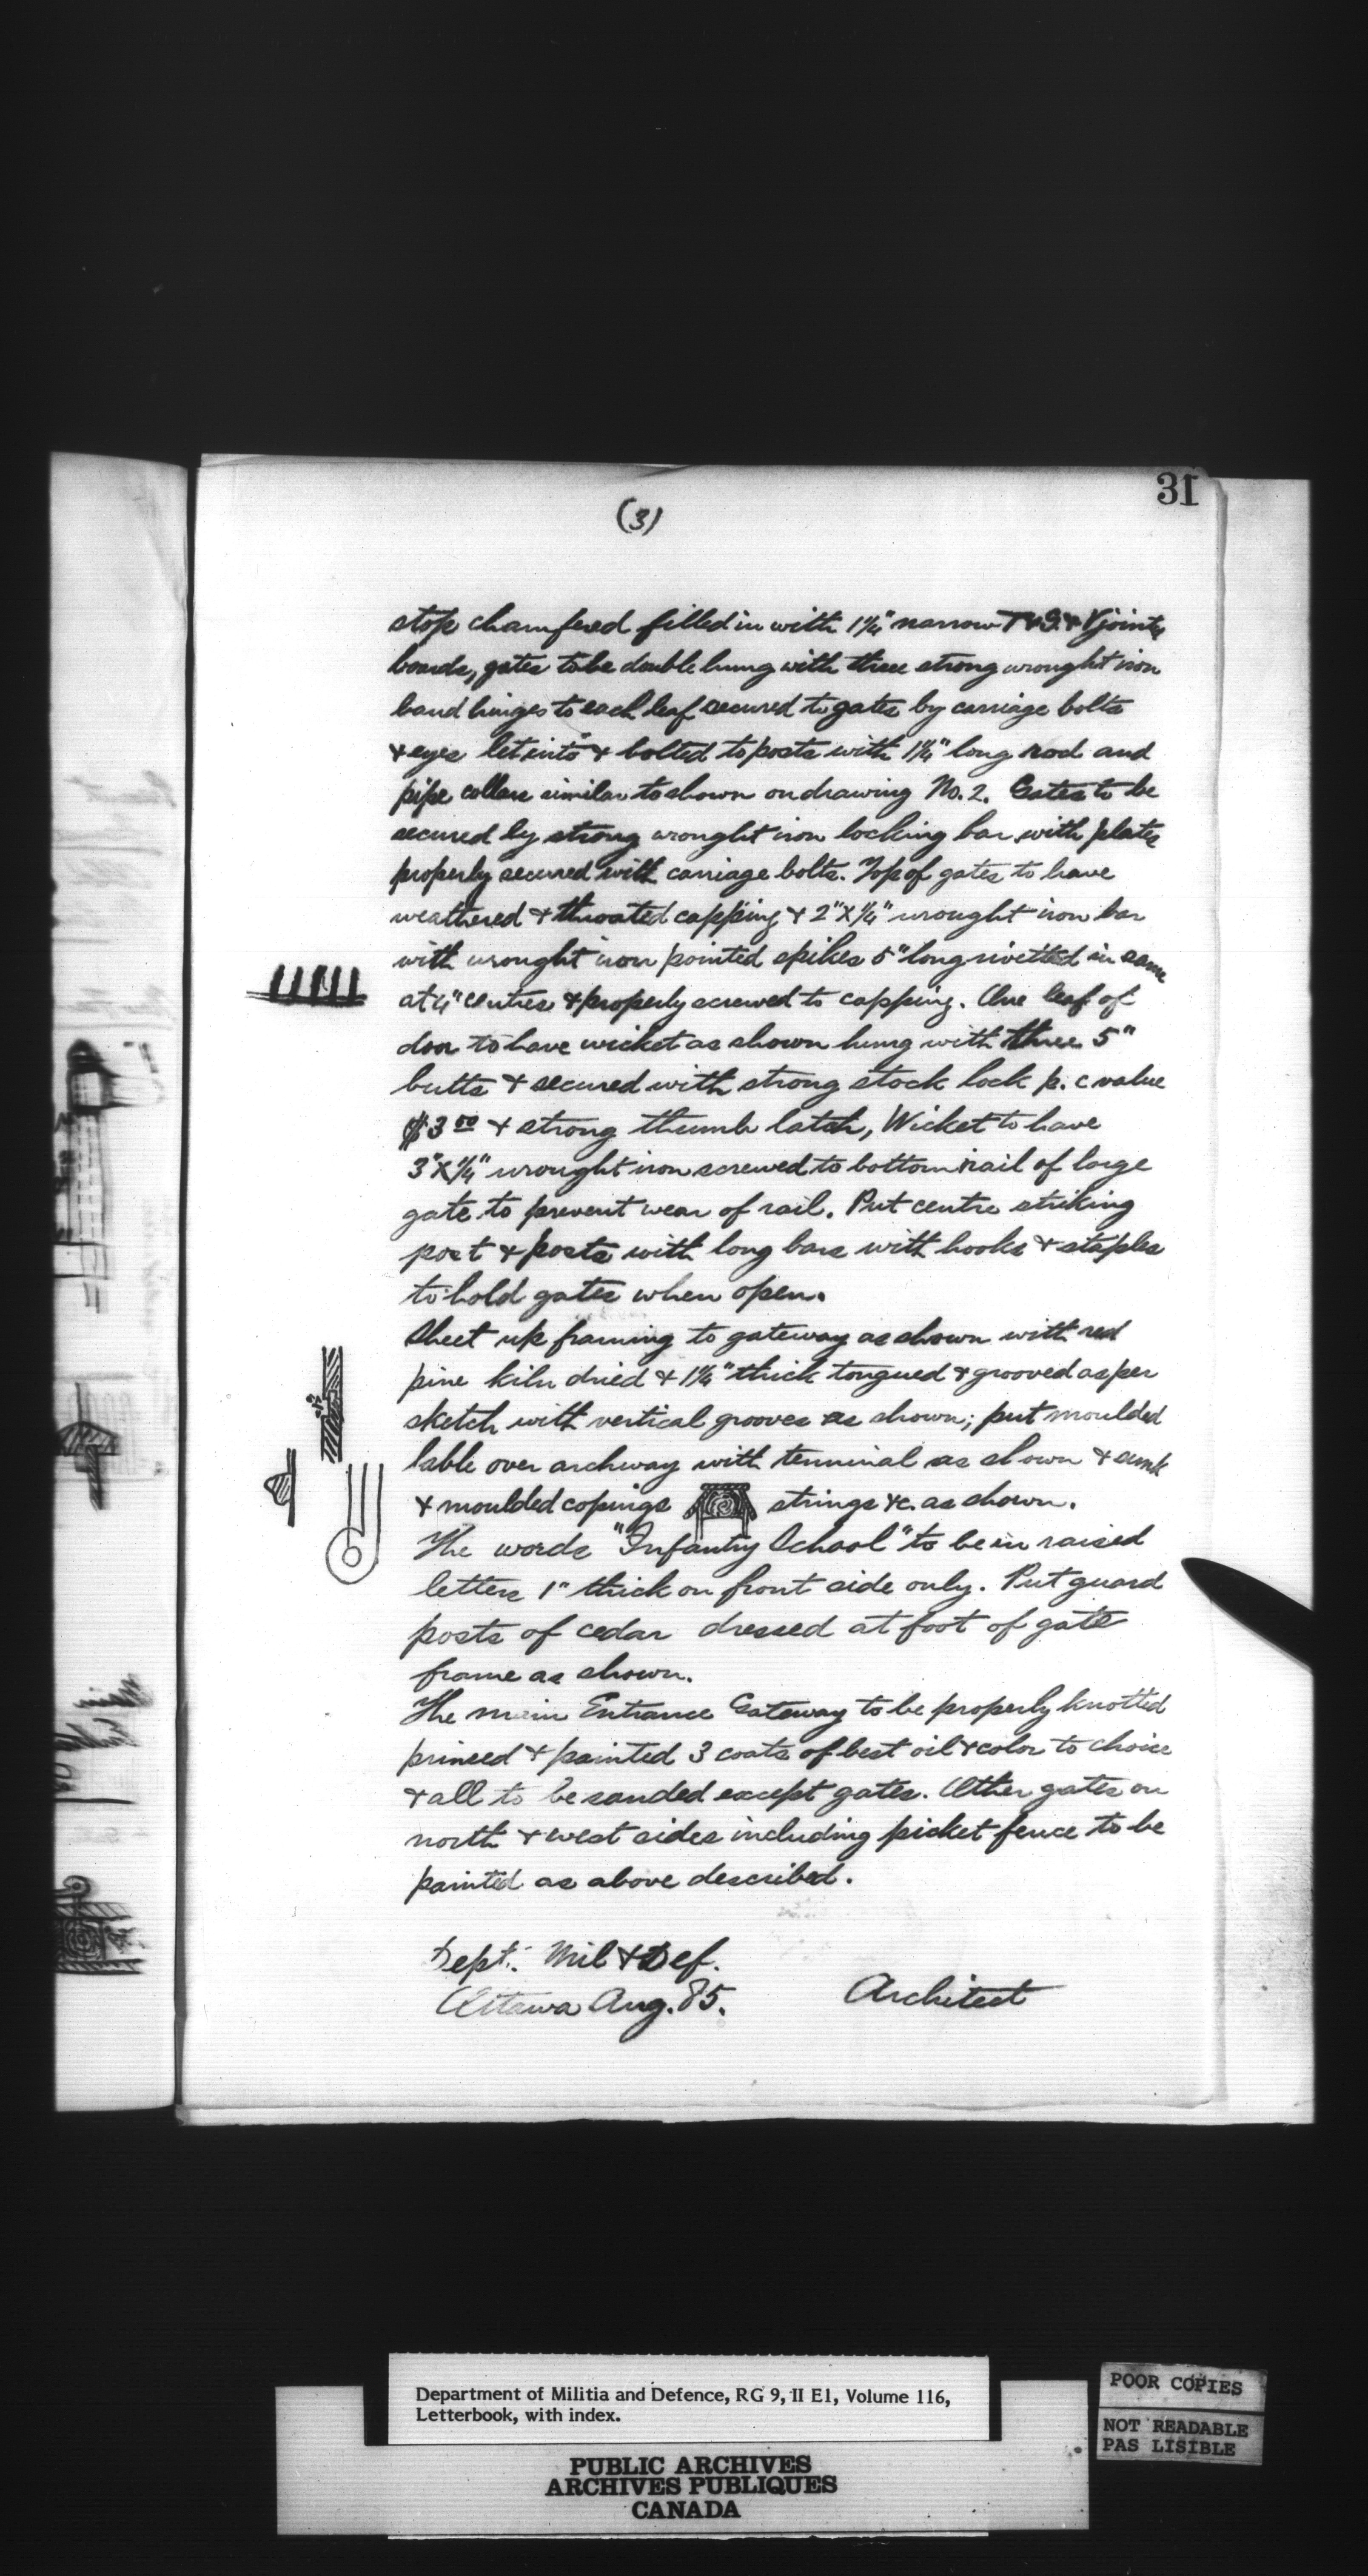 31
(3)
stop chamfered filled in with 1¼" narrow T & G. & V joints
boards, gates to be double hung with three strong wrought iron
band hinges to each leaf secured to gates by carriage bolts
& eyes let into & bolted to posts with 1¼" long rod and
pipe collars similar to shown on drawing No. 2. Gates to be
secured by strong wrought iron locking bar with plates
properly secured with carriage bolts. Top of gates to have
weathered & throated capping & 2" X ¼" wrought iron bar
with wrought iron pointed spikes 5" long rivetted in same
at 4" centres & properly screwed to capping. One leaf of
door to have wicket as shown hung with three 5"
butts & secured with strong stock lock p. c value
$3 00 & strong thumb latch, Wicket to have
3" X ¼" wrought iron screwed to bottom rail of large
gate to prevent wear of rail. Put centre striking
post & posts with long bars with hooks & staples
to hold gates when open.
Sheet up framing to gateway as shown with red
pine kiln dried & 1¼" thick tongued & grooved as per
sketch with vertical grooves as shown; put moulded
lable over archway with terminal as shown & sunk
& moulded copings strings &c. as shown.
The words "Infantry School" to be in raised
letters 1" thick on front side only. Put guard
posts of cedar dressed at foot of gate
frame as shown.
The main Entrance Gateway to be properly knotted
primed & painted 3 coats of best oil & color to choice
& all to be sanded except gates. Other gates on
north & west sides including picket fence to be
painted as above described.
Dept. Mil & Def.
Ottawa Aug. 85.
Architect
Department of Militia and Defence, RG 9, II E1, Volume 116,
Letterbook, with index.
PUBLIC ARCHIVES
ARCHIVES PUBLIQUES
CANADA
POOR COPIES
NOT READABLE
PAS LISIBLE